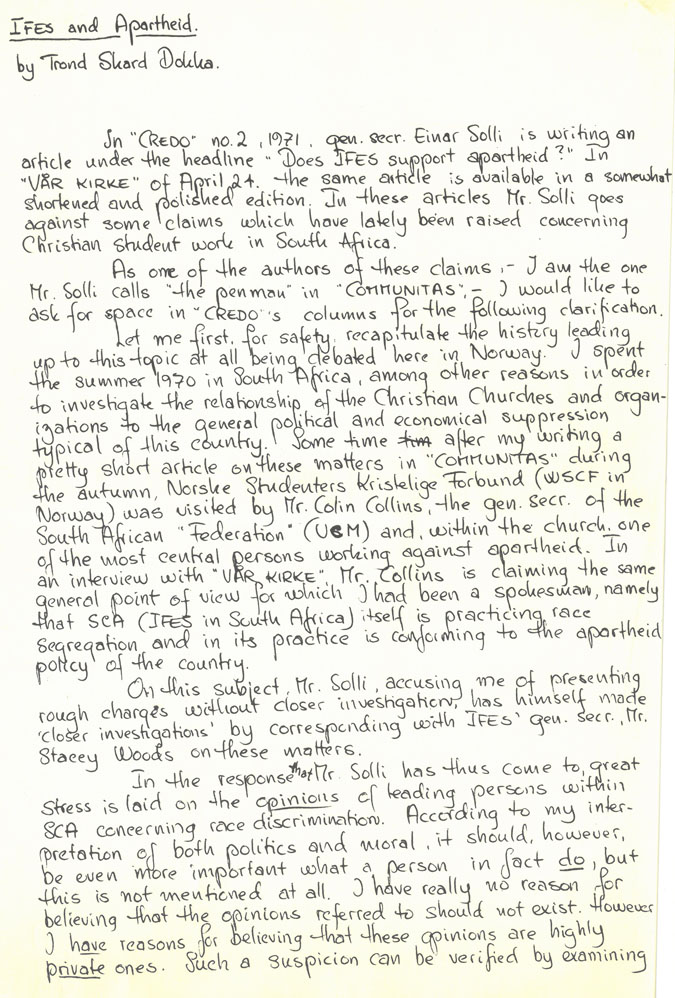 IFES and Apartheid.
by Trond Skard Dokka.
In "CREDO" no. 2, 1971, gen. secr. Einar Solli is writing an
article under the headline "Does IFES support apartheid?" In
"VÅR KIRKE" of April 24. the same article is available in a somewhat
shortened and polished edition. In these articles Mr. Solli goes
against some claims which have lately been raised concerning
Christian student work in South Africa.
As one of the authors of these claims, - I am the one
Mr. Solli calls "the penman" in "COMMUNITAS", - I would like to
ask for space in "CREDO"'s columns for the following clarification.
Let me first, for safety, recapitulate the history leading
up to this topic at all being debated here in Norway. I spent
the summer 1970 in South Africa, among other reasons in order
to investigate the relationship of the Christian Churches and organ-
izations to the general political and economical suppression
typical of this country. Some time tim after my writing a
pretty short article on these matters in "COMMUNITAS" during
the autumn, Norske Studenters Kristelige Forbund (WSCF in
Norway) was visited by Mr. Colin Collins, the gen. secr. of the
South African "Federation" (UCM) and, within the church, one
of the most central persons working against apartheid. In
an interview with "VÅR KIRKE", Mr. Collins is claiming the same
general point of view for which I had been a spokesman, namely
that SCA (IFES in South Africa) itself is practicing race
segregation, and in its practice is conforming to the apartheid
policy of the country.
On this subject, Mr. Solli, accusing me of presenting
rough charges without closer investigation, has himself made
'closer investigations' by corresponding with IFES' gen. secr., Mr.
Stacey Woods on these matters.
In the response that Mr. Solli has thus come to, great
stress is laid on the opinions of leading persons within
SCA concerning race discrimination. According to my inter-
pretation of both politics and moral, it should, however,
be even more important what a person in fact do, but
this is not mentioned at all. I have really no reason for
believing that the opinions referred to should not exist. However
I have reasons for believing that these opinions are highly
private ones. Such a suspicion can be verified by examining